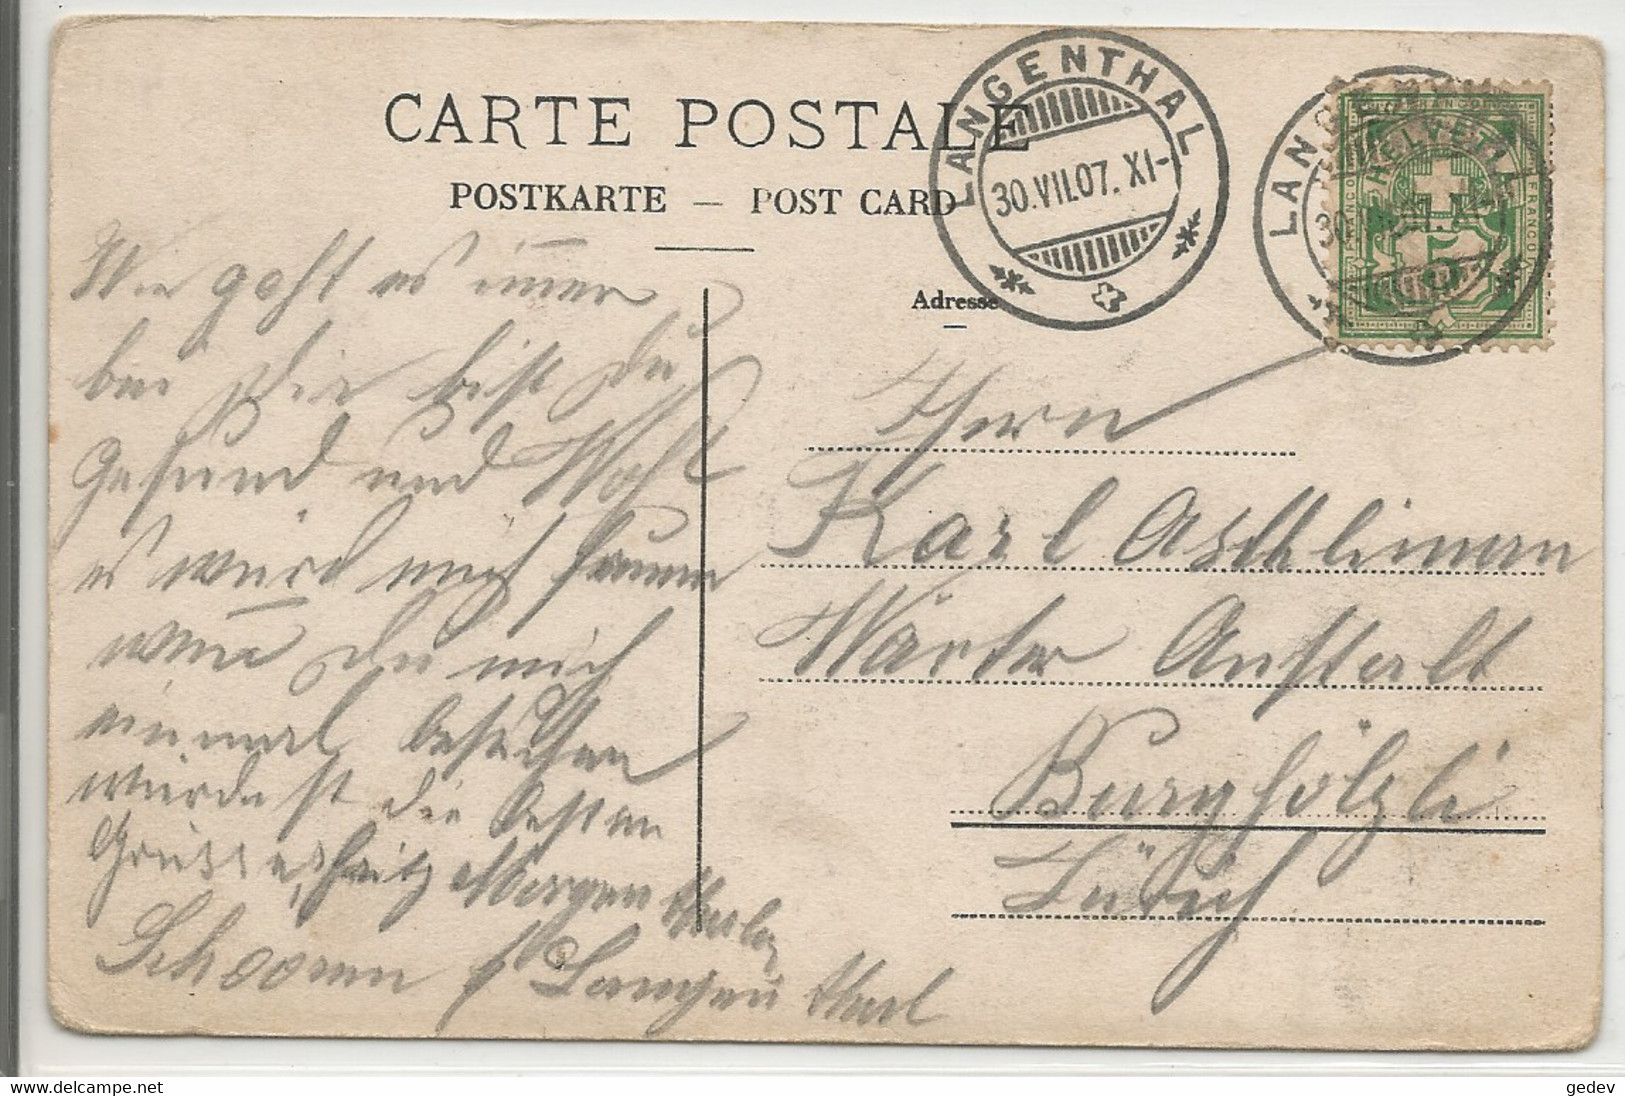 CARTE POSTALE
POSTKARTE — POST CARD
LANGENTHAL
30.VII.07. XI-
LANGENTHAL
HELVETIA
FRANCO
5
Adresse
Wie geht es immer
bei Dir bist Du
Gesund und Wohl
es würd mich freuen
wenn Du mich
einmal besuchen
würdest die besten
Grüsse, Fritz
Schooren b/ Langenthal
Herrn
Karl Aschliman
Wärter Anstalt
Burghölzli
Zürich
www.delcampe.net
gedev